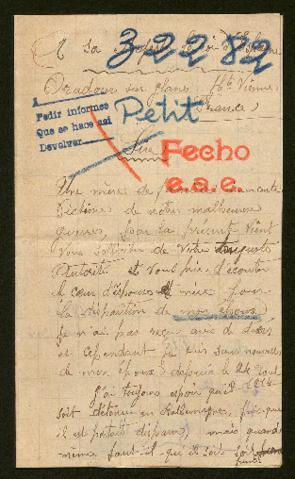 A Sa Majesté le Roi d'Espagne
32282
Oradour sur glane Hte Vienne
France
Pedir informes
Que se hace así
Devolver
Petit
Sire
Fecho
e.a.e.
Une mère de famille
victime de notre malheureuse
guerre, par la présente vient
vous solliciter de Votre Auguste
Autorité et vous prie d'écouter
le cœur d'épouse et mère pour
la disparition de mon époux
Je n'ai pas reçu avis de décès
et cependant je suis sans nouvelles
de mon époux depuis le 28 Août
1914
J'ai toujours espoir qu'il
soit détenu en Allemagne, puisque
il est porté disparu, mais quand
même faut-il qu'il soit